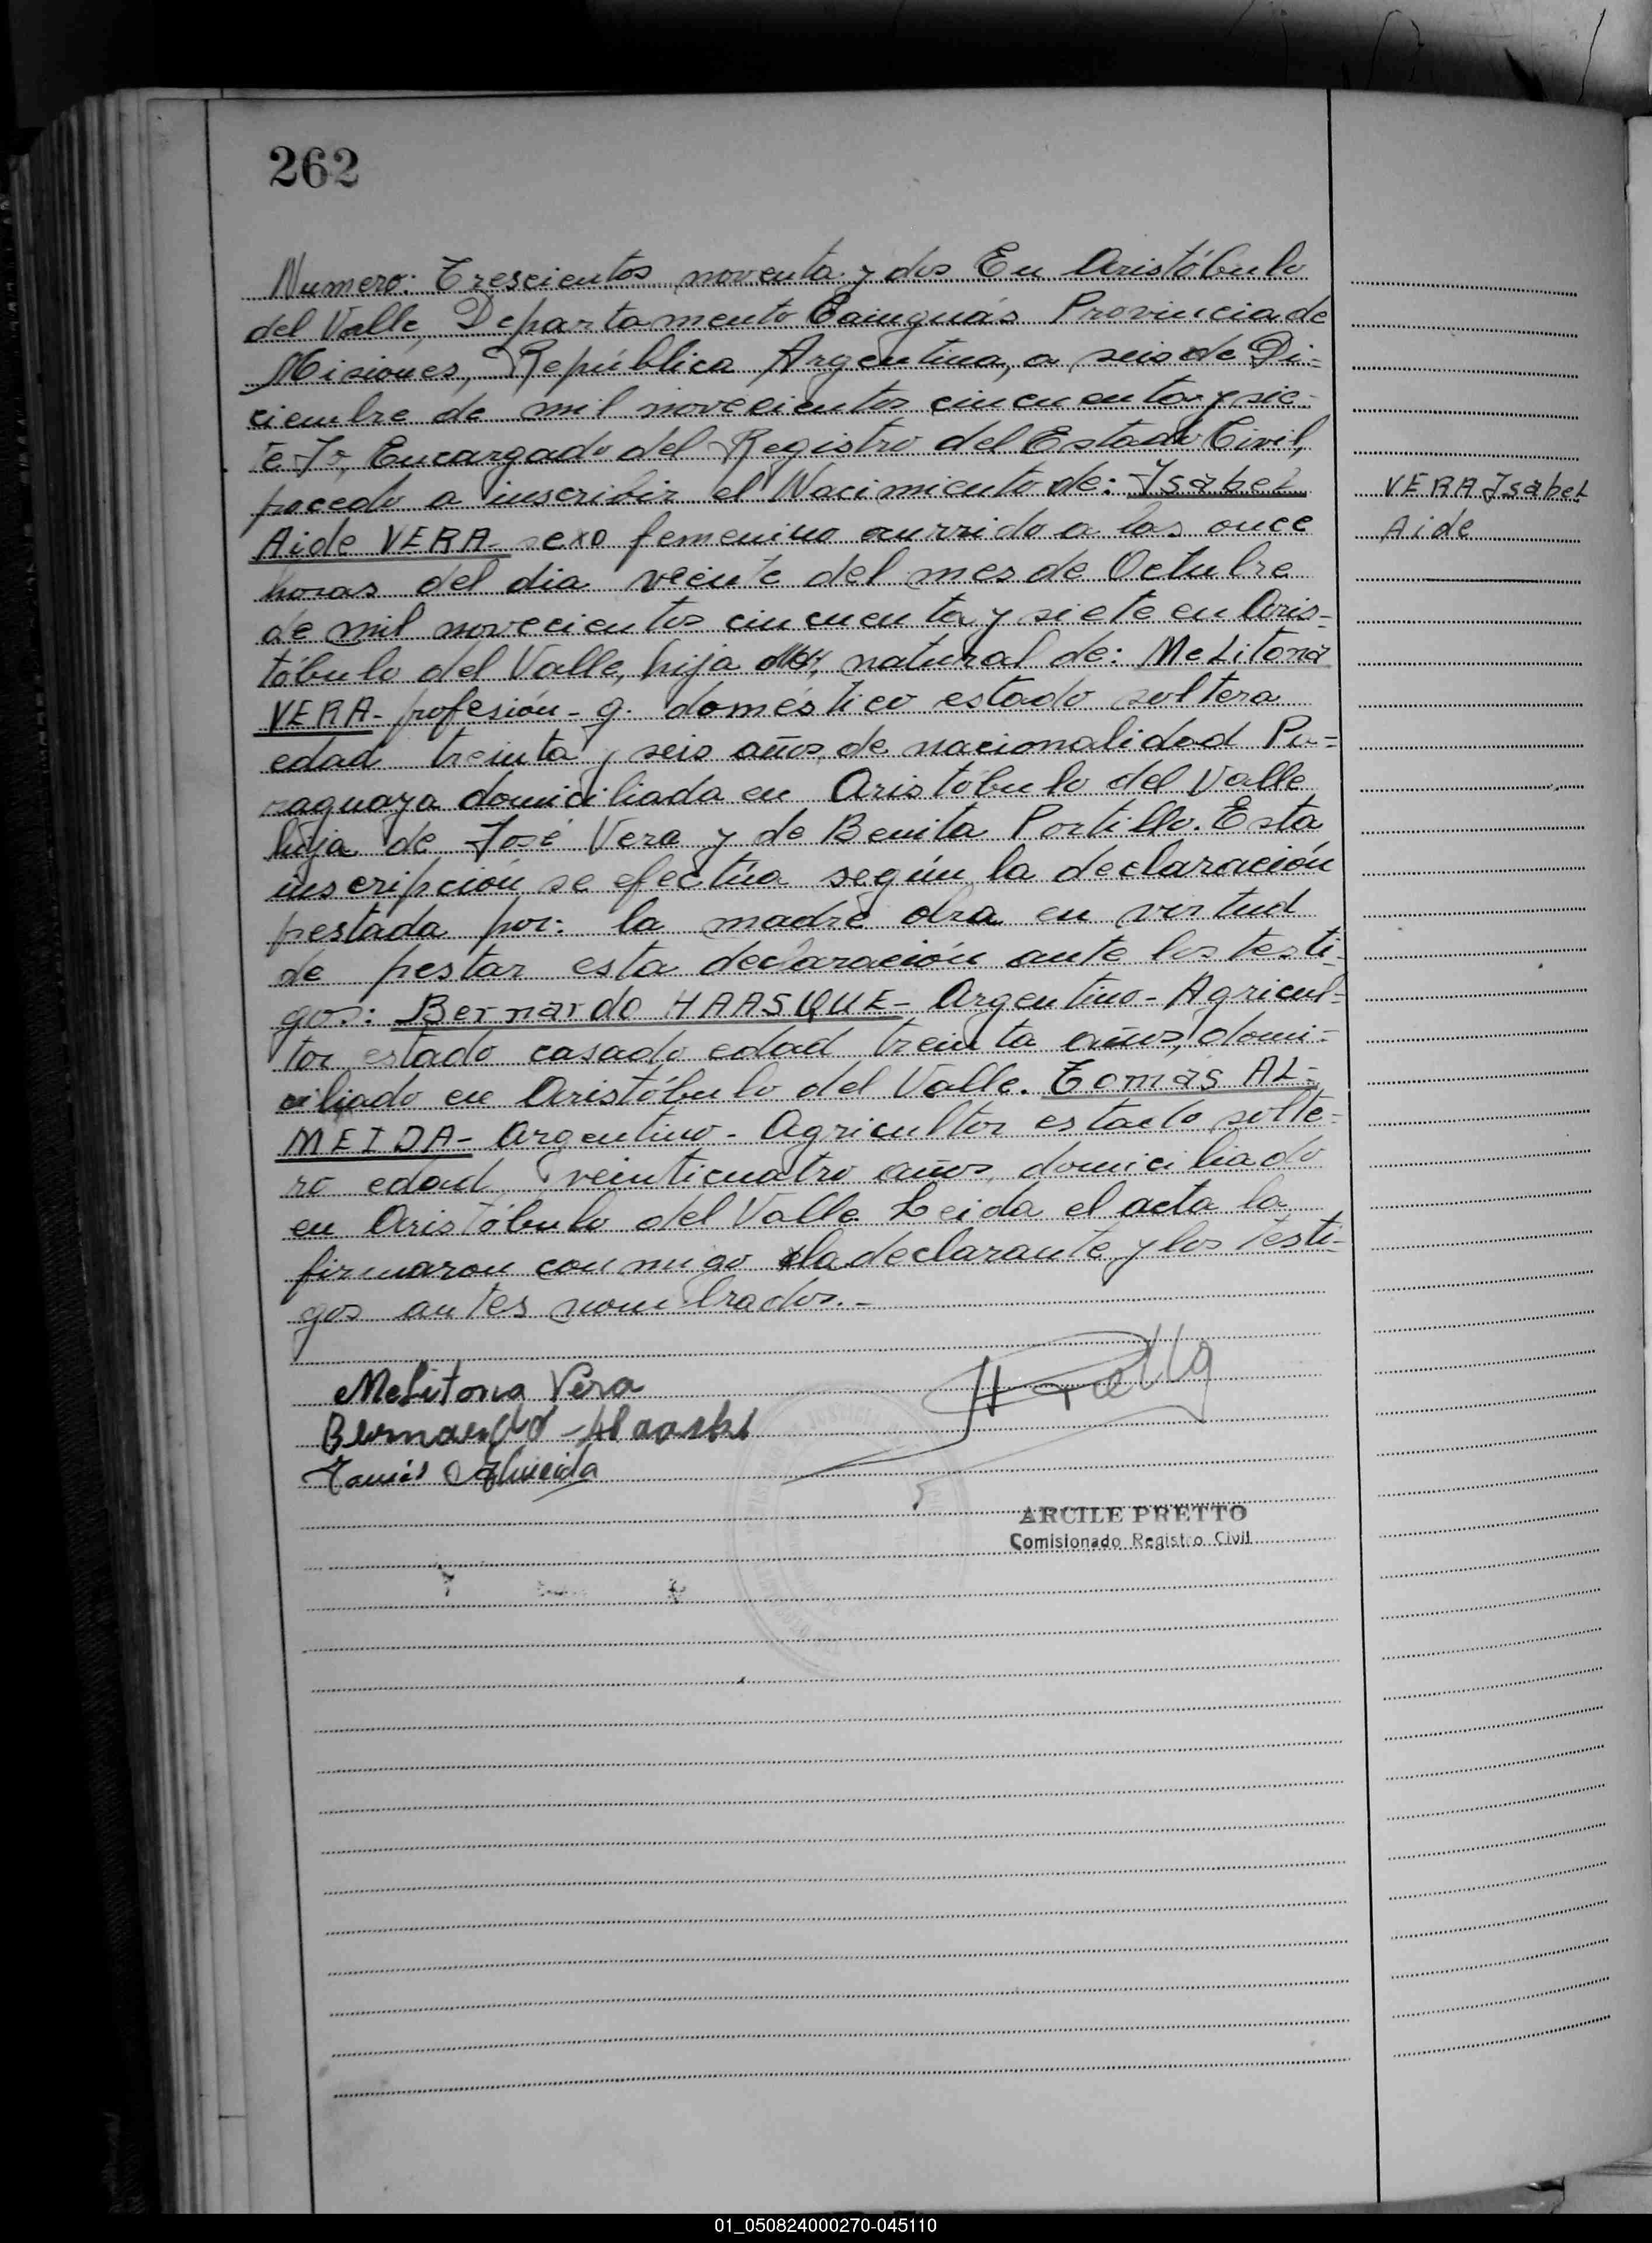 262
Numero: Trescientos noventa y dos En Aristóbulo
del Valle, Departamento Cainguás Provincia de
Misiones, República Argentina, a seis de Di=
ciembre de mil novecientos cincuenta y sie-
te Yo, Encargado del Registro del Estado Civil,
procedo a inscribir el Nacimiento de: Isabel
VERA Isabel
Aide VERA- sexo femenino ocurrido a las once
Aide
horas del dia veinte del mes de Octubre
de mil novecientos cincuenta y siete en Aris=
tóbulo del Valle, hija natural de: Melitona
VERA- profesión- q. doméstico estado soltera
edad treinta y seis años de nacionalidad Pa=
raguaya domiciliada en Aristóbulo del Valle
hija de José Vera y de Benita Portillo. Esta
inscripción se efectúa según la declaración
prestada por: la madre obra en virtud
de prestar esta declaración ante los testi-
gos: Bernardo HAASQUE- Argentino- Agricul=
tor estado casado edad treinta años, domi=
ciliado en Aristóbulo del Valle. Tomás AL=
MEIDA- Argentino- Agricultor estado solte=
ro edad veinticuatro años domiciliado
en Aristóbulo del Valle Leida el acta la
firmaron conmigo la declarante y los testi-
gos antes nombrados.-
Melitona Vera
Bernardo
Tomás Almeida
ARCILE PRETTO
Comisionado Registro Civil
01_050824000270-045110